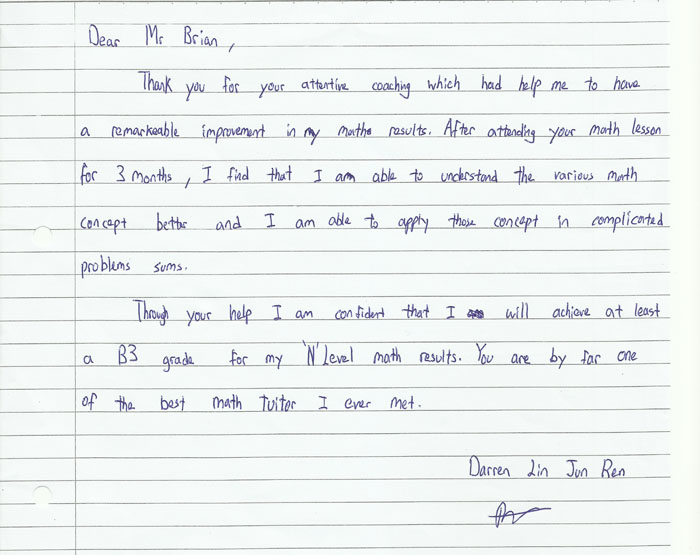 Dear Mr Brian,
Thank you for your attentive coaching which had help me to have
a remarkeable improvement in my maths results. After attending your math lesson
for 3 months, I find that I am able to understand the various math
concept better and I am able to apply those concept in complicated
problems sums.
Through your help I am confident that I will achieve at least
a B3 grade for my 'N' Level math results. You are by far one
of the best math tuitor I ever met.
Darren Lin Jun Ren